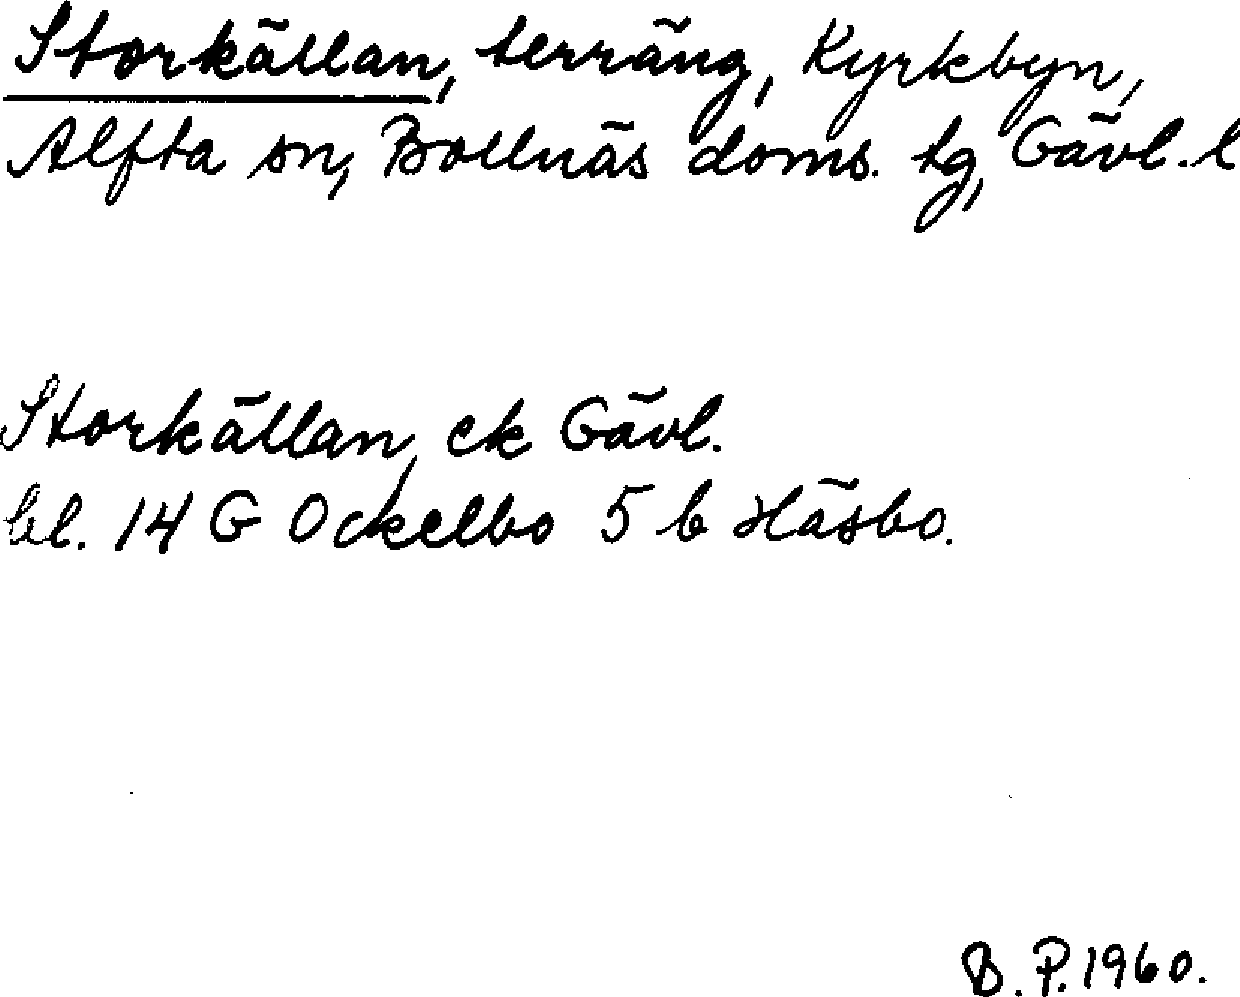 Storkällan, terräng, Kyrkbyn,
Alfta sn, Bollnäs doms. tg, Gävl. l
Storkällan, ek Gävl.
bl. 14 G Ockelbo 5 b Häsbo.
B. P. 1960.